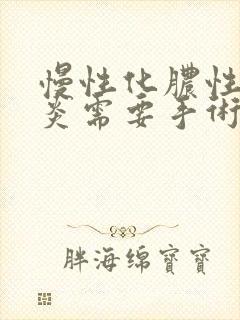 慢性化膿性
炎需要手術
胖海绵寶寶